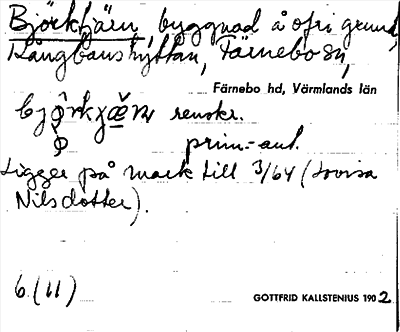 Björktjärn, byggnad å ofri grund,
Långbanshyttan, Färnebo sn,
Färnebo hd, Värmlands län
renskr.
prim.-ant.
Ligger på mark till 3/64 (Lovisa
Nilsdotter).
6 (11)
GOTTFRID KALLSTENIUS 1902